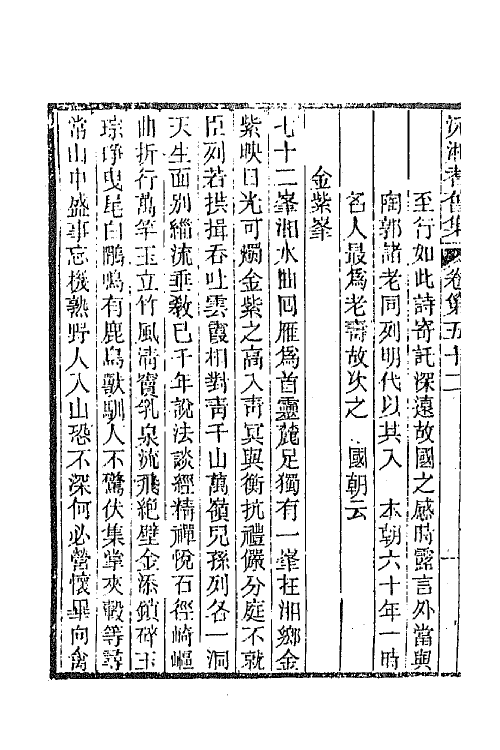 沅湘耆舊集 卷第五十二
至行如此詩寄託深遠故國之感時露言外當與
陶郭諸老同列明代以其入 本朝六十年一時
名人最爲老壽故次之 國朝云
金紫峯
七十二峯湘水曲回雁爲首靈麓足獨有一峯在湘鄉金
紫映日光可燭金紫之高入靑冥與衡抗禮儼分庭不就
臣列若拱揖吞吐雲霞相對靑千山萬嶺兒孫列各一洞
天生面別緇流垂敎已千年說法談經精禪悅石徑崎嶇
曲折行萬竿玉立竹風淸寶乳泉流飛絕壁金添鎖碎玉
琮琤曳尾白鷴鳴有鹿鳥獸馴人不驚伏集掌夾轂等尋
常山中盛事忘機熟野人入山恐不深何必營懷畢向禽